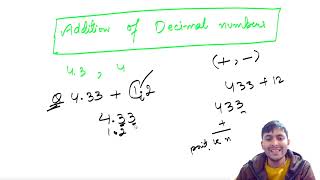 Addition of Decimal numbers
4.3 , 4
(+, -)
Q 4.33 + 1.2
4.33
1.2
433 + 12
433
+